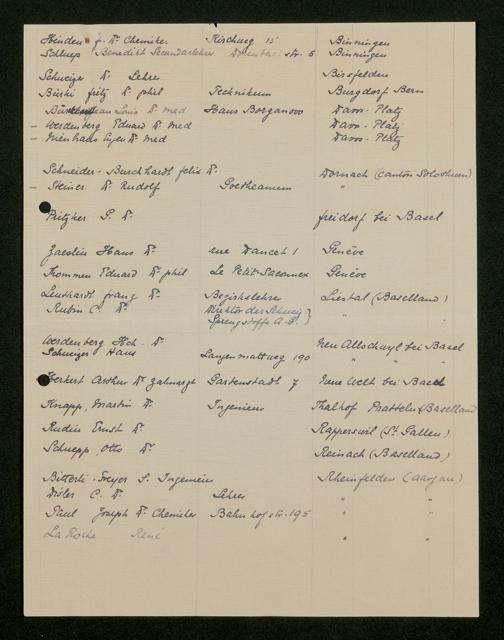 Heinden J. Dr. Chemiker Kirchweg 15 Binningen
Schluep Benedikt Secundarlehrer str. 5 Binningen
Schweizer A. Lehrer Birsfelden
Bürki Fritz Dr. phil Technikum Burgdorf Bern
Jean Louis Dr. med Haus Davos-Platz
– Werdenberg Eduard Dr. med Davos-Platz
– Nienhaus Eugen Dr. med Davos-Platz
Schneider-Burckhardt Felix Dr. Dornach (Canton Solothurn)
– Steiner Dr. Rudolf Goetheanum "
Pritzker S. Dr. Freidorf bei Basel
Zaeslin Hans Dr. rue Dancet 1 Genève
Kommen Eduard Dr. phil Le Petit-Saconnex Genève
Leuthardt Franz Dr. Bezirkslehrer Liestal (Baselland)
Rubin C. Dr. Direktor der Schweiz. } " "
Sprengstoffe A.G. }
Werdenberg Hch. Dr. Neu Allschwyl bei Basel
Schweizer Hans Langenmattweg 190 " " "
Herkert Arthur Dr. Zahnarzt Gartenstadt 7 Neue Welt bei Basel
Knapp, Martin Dr. Ingenieur Thalhof Pratteln (Baselland
Rudin Ernst Dr. Rapperswil (St. Gallen)
Schnepp, Otto Dr. Reinach (Baselland)
Bitterli-Treyer S. Ingenieur Rheinfelden (Aargau)
Disler C. Dr. Lehrer " "
Paul Joseph Dr. Chemiker Bahnhofstr. 195 " "
La Roche René " "